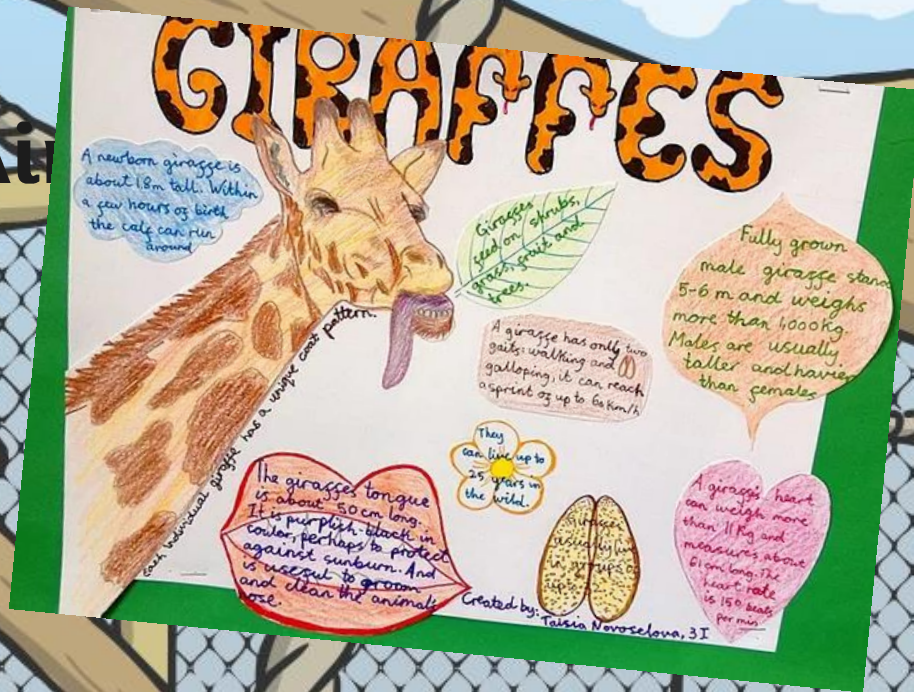 GIRAFFES
Air
A newborn giraffe is
about 1.8m tall. Within
a few hours of birth
the calf can run
around
Giraffes
feed on shrubs,
grass, fruit and
trees.
Fully grown
male giraffe stand
5-6 m and weighs
more than 1,000kg.
Males are usually
taller and havier
than females
A giraffe has only two
gaits: walking and
galloping, it can reach
a sprint of up to 60 Km/h
Each individual giraffe has a unique coat pattern.
They
can live up to
25 years in
the wild.
The giraffes tongue
is about 50 cm long.
It is purplish-black in
coulor, perhaps to protect
against sunburn. And
is useful to groom
and clean the animals
nose.
Giraffes
usually live
in groups
A giraffes heart
can weigh more
than 11 Kg and
measures about
61 cm long. The
heart rate
is 150 beats
per min
Created by:
Taisia Novoselova, 3I